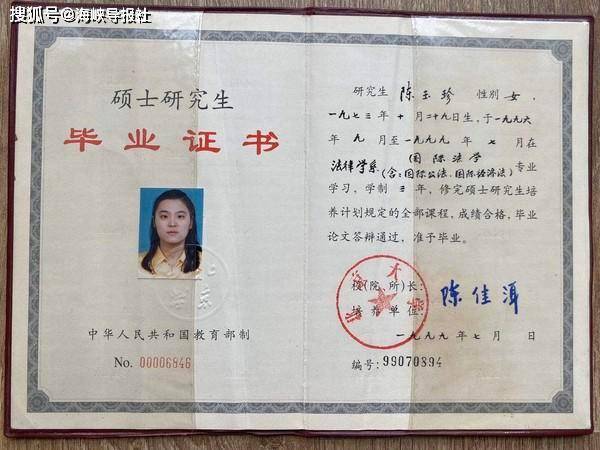 搜狐号@海峡导报社
硕士研究生
毕业证书
中华人民共和国教育部制
No. 00006846
研究生 陈玉珍 性别 女,
一九七三年 十 月二十九日生,于一九九六
年 九 月至一九九九年 七 月在
法律学系 (国际法学
(含:国际公法、国际经济法) 专业
学习,学制 三 年,修完硕士研究生培
养计划规定的全部课程,成绩合格,毕业
论文答辩通过,准予毕业。
校(院、所)长: 陈佳洱
培养单位:
一九九九年七月 日
编号: 99070894